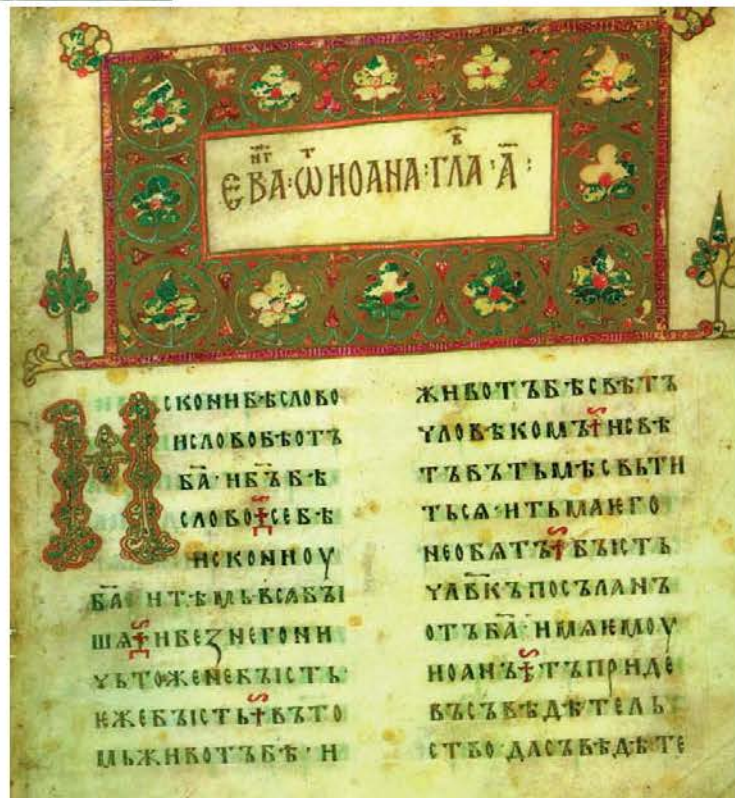 ЕВА҃НГ·Ѿ ИОАНА·ГЛАВ҃·А҃:
ИСКОНИБѢСЛОВО
ИСЛОВОБѢОТЪ
БА҃·ИБЪ҃БѢ
СЛОВО СЕБѢ
ИСКОНИОУ
БА҃ ИТѢМЬВСѦБЪІ
ШѦ ИБЕЗНЕГОНИ
ЧЬТОЖЕНЕБЪІСТЬ·
ЕЖЕБЪІСТЬ ВЪТО
МЬЖИВОТЪБѢ·И
ЖИВОТЪБѢСВѢТЪ
ЧЛОВѢКОМЪ ИСВѢ
ТЪВЪТЬМѢСВЬТИ
ТЬСѦ·ИТЬМАѤГО
НЕОБѦТЪ БЪІСТЬ
ЧЛ҃ВКЪПОСЪЛАНЪ
ОТЪБА҃·ИМѦѤМОУ
ИОАНЪ ТЪПРИДЕ
ВЪСЪВѢДѢТЕЛЬ
СТВО·ДАСЪВѢДѢТЕ